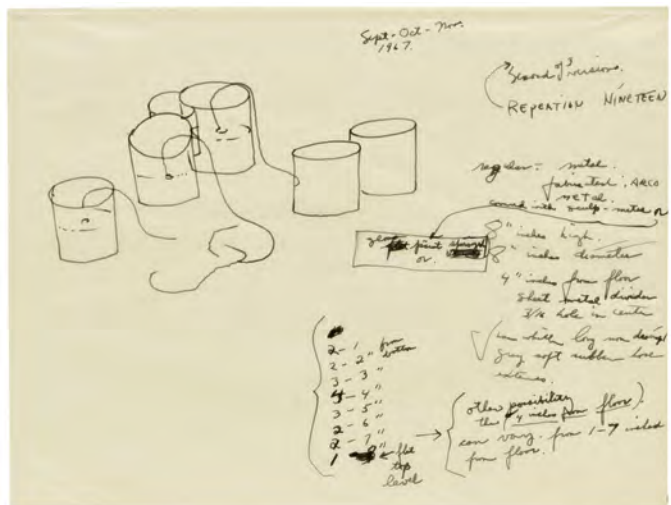 Sept-Oct-Nov.
1967.
Second of 3 versions.
REPETION NINETEEN
regular - metal.
fabricated. ARCO
METAL
covered with sculp-metal or
8" inches high.
8" inches diameter
4" inches from floor
sheet metal divider
hole in center
long
gray soft rubber hose
extends.
paint
or
2-1" from
2-2" bottom
3-3"
4-4"
3-5"
2-6"
2-7"
1 8" ← flat
top
level
other possibility
the 4 inches from floor
can vary. from 1-7 inches
from floor.